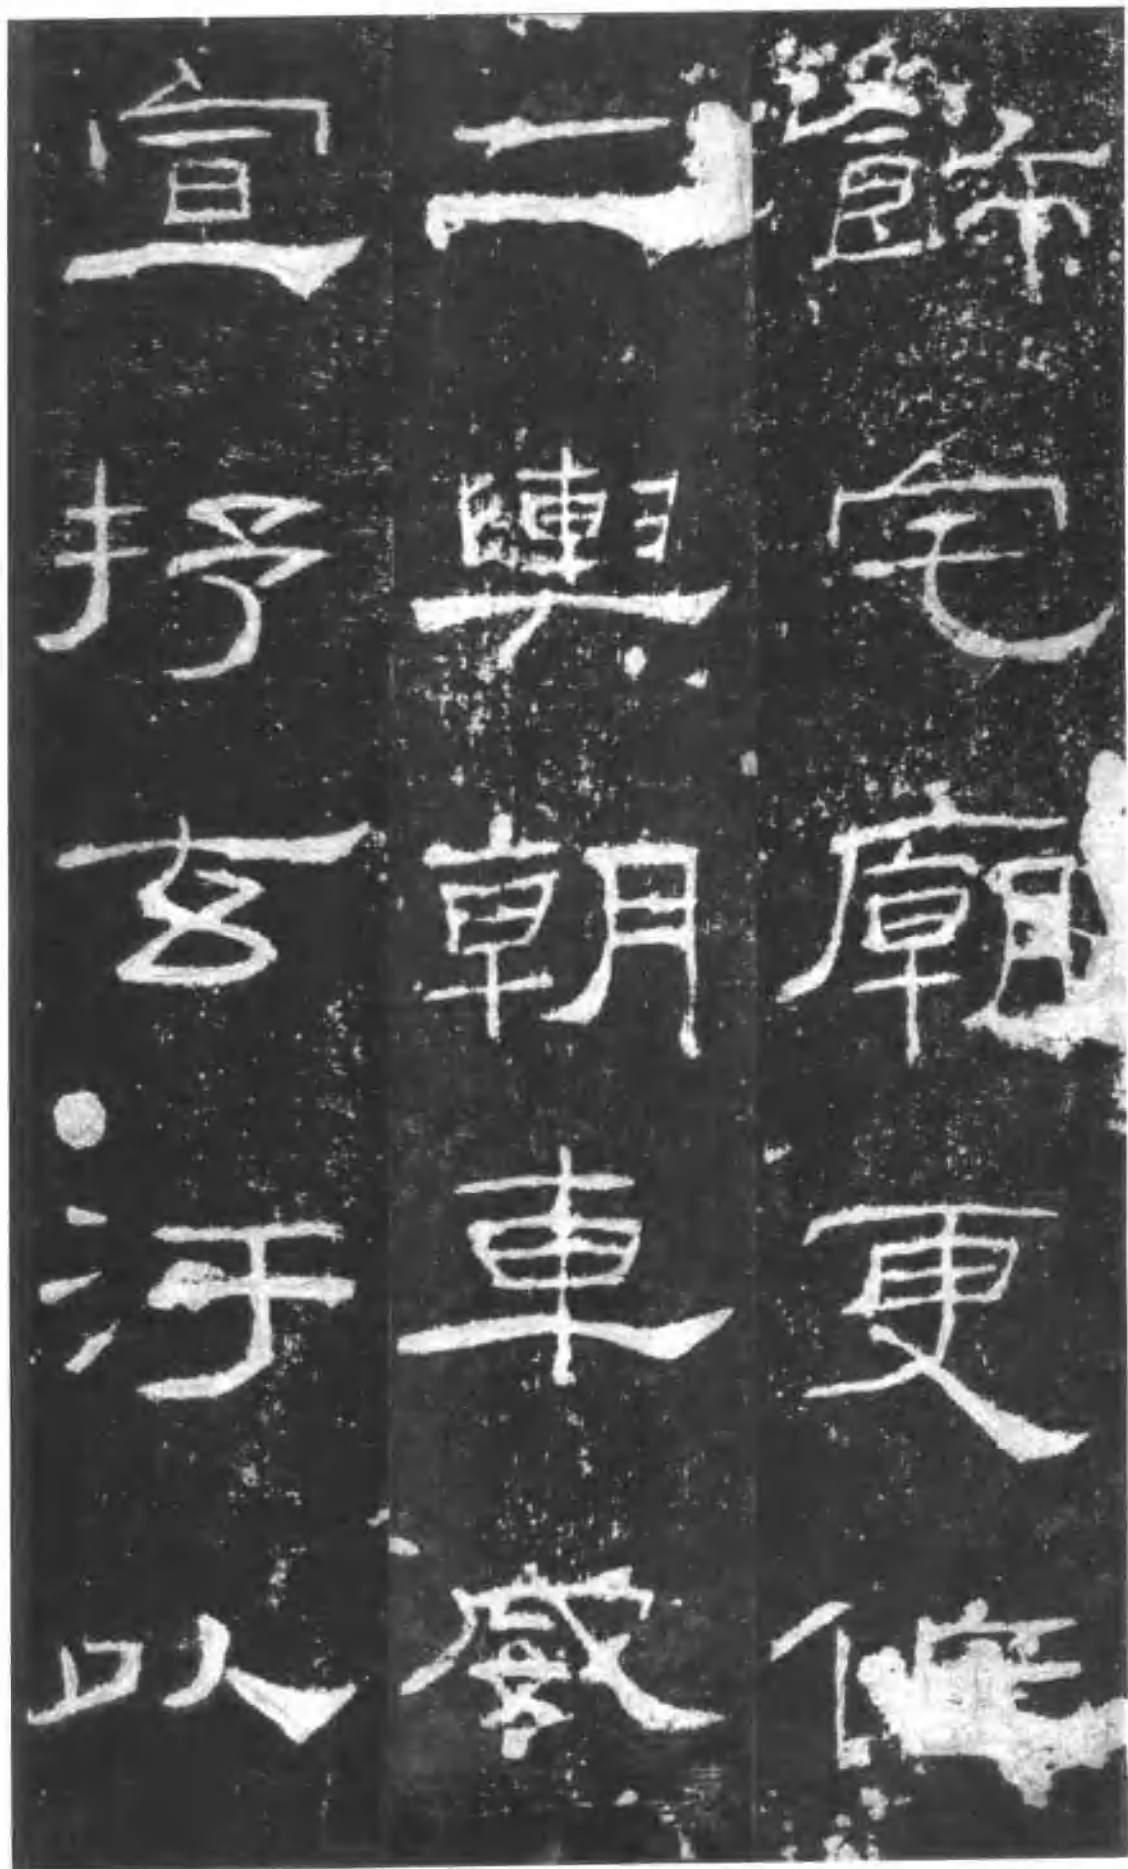 飾宅廟更作
二輿朝車威
宣抒玄汙以